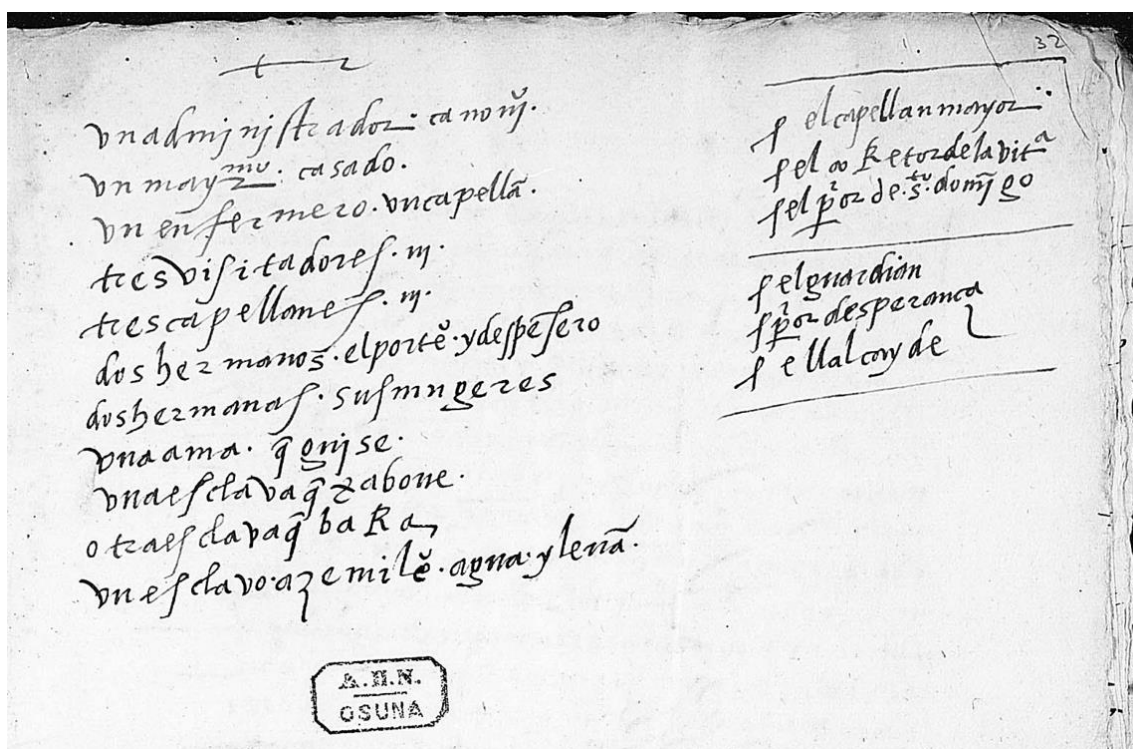 32
vn administrador. canonj.
vn maymo. casado.
vn enfermero. vn capellā.
tres visitadores. iij.
tres capellanes. iij.
dos hermanos. el portĕ. y despēsero
dos hermanas. sus mugeres
vna ama. q̄ guise.
vna esclava q̄ xabone.
otra esclava q̄ baRa
vn esclavo. azemilĕ. agua. y leñā.
el capellan mayor
el Retor de la vita
el pīor de. sto. domīgo
el guardian
pīor desperanca
ellalcayde
A.H.N.
OSUNA